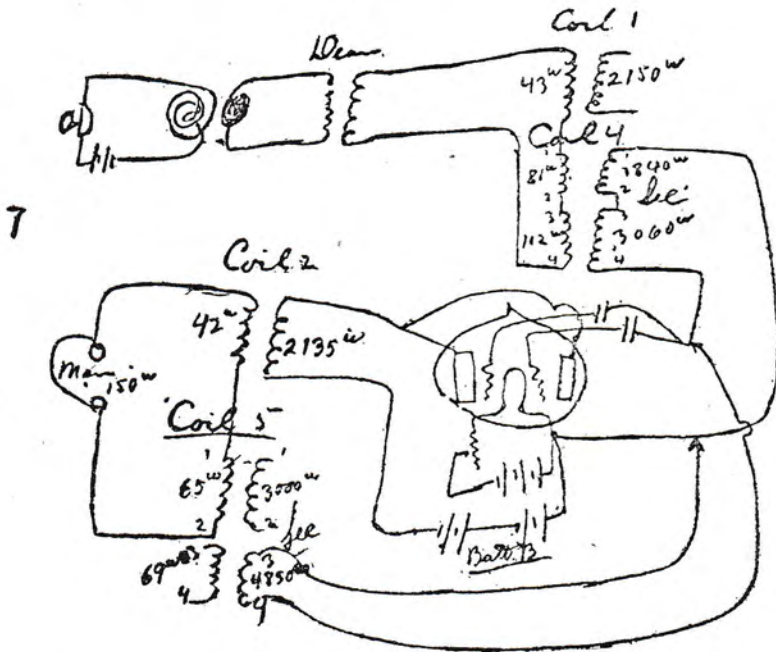 Coil 1
43ʷ
2150ʷ
Coil 4
1
81ʷ
2
3
112ʷ
4
1
1840ʷ
2
Sec
3060ʷ
4
7
Coil 2
42ʷ
2135ʷ
150ʷ
Coil 5
1
65ʷ
2
1
3000ʷ
2
Sec
69ʷ
3
4
3
4850ʷ
4
Batt B